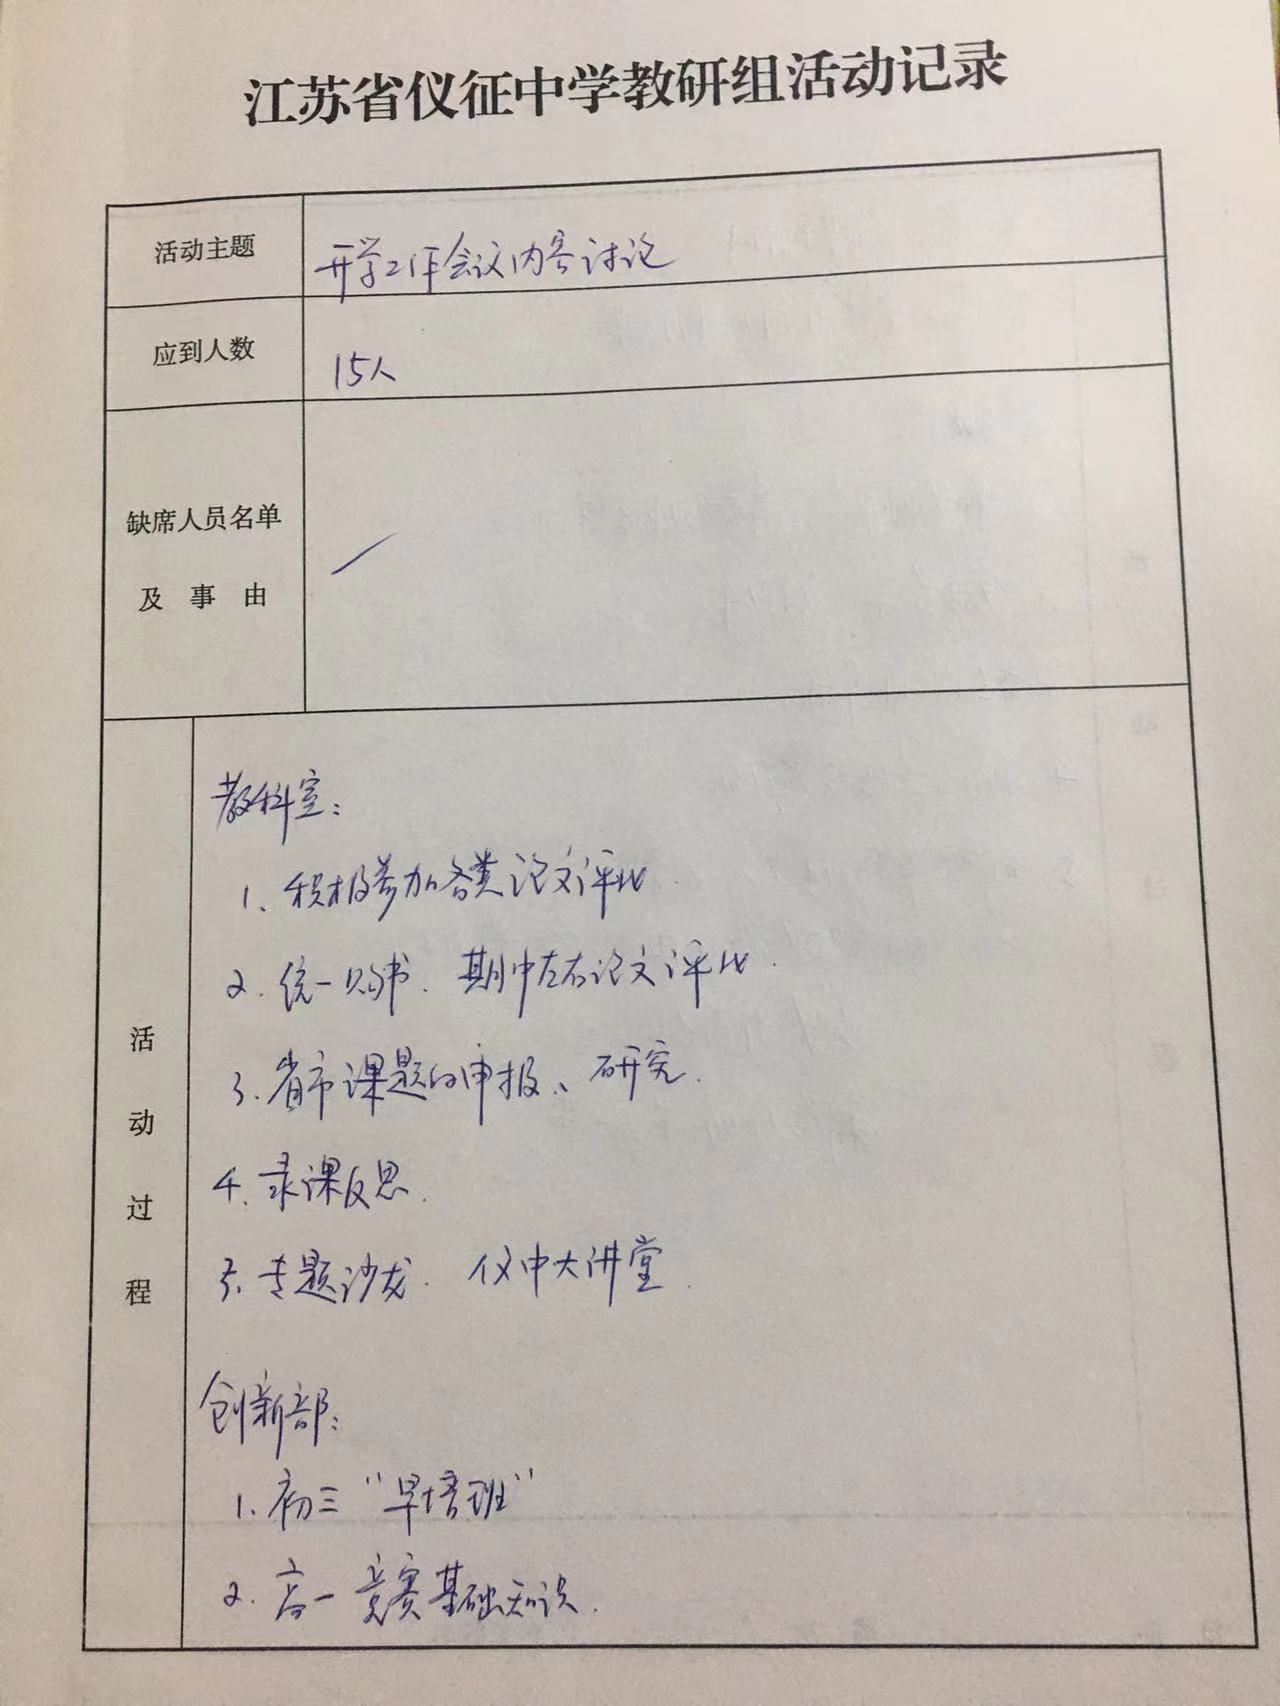 江苏省仪征中学教研组活动记录
活动主题
开学工作会议内容讨论
应到人数
15人
缺席人员名单
及 事 由
活动过程
教科室：
1、积极参加各类论文评比.
2. 统一购书. 期中左右论文评比.
3. 省市课题的申报、研究.
4. 录课反思.
5. 专题沙龙. 仪中大讲堂.
创新部：
1. 初三“早培班”
2. 高一竞赛基础知识.